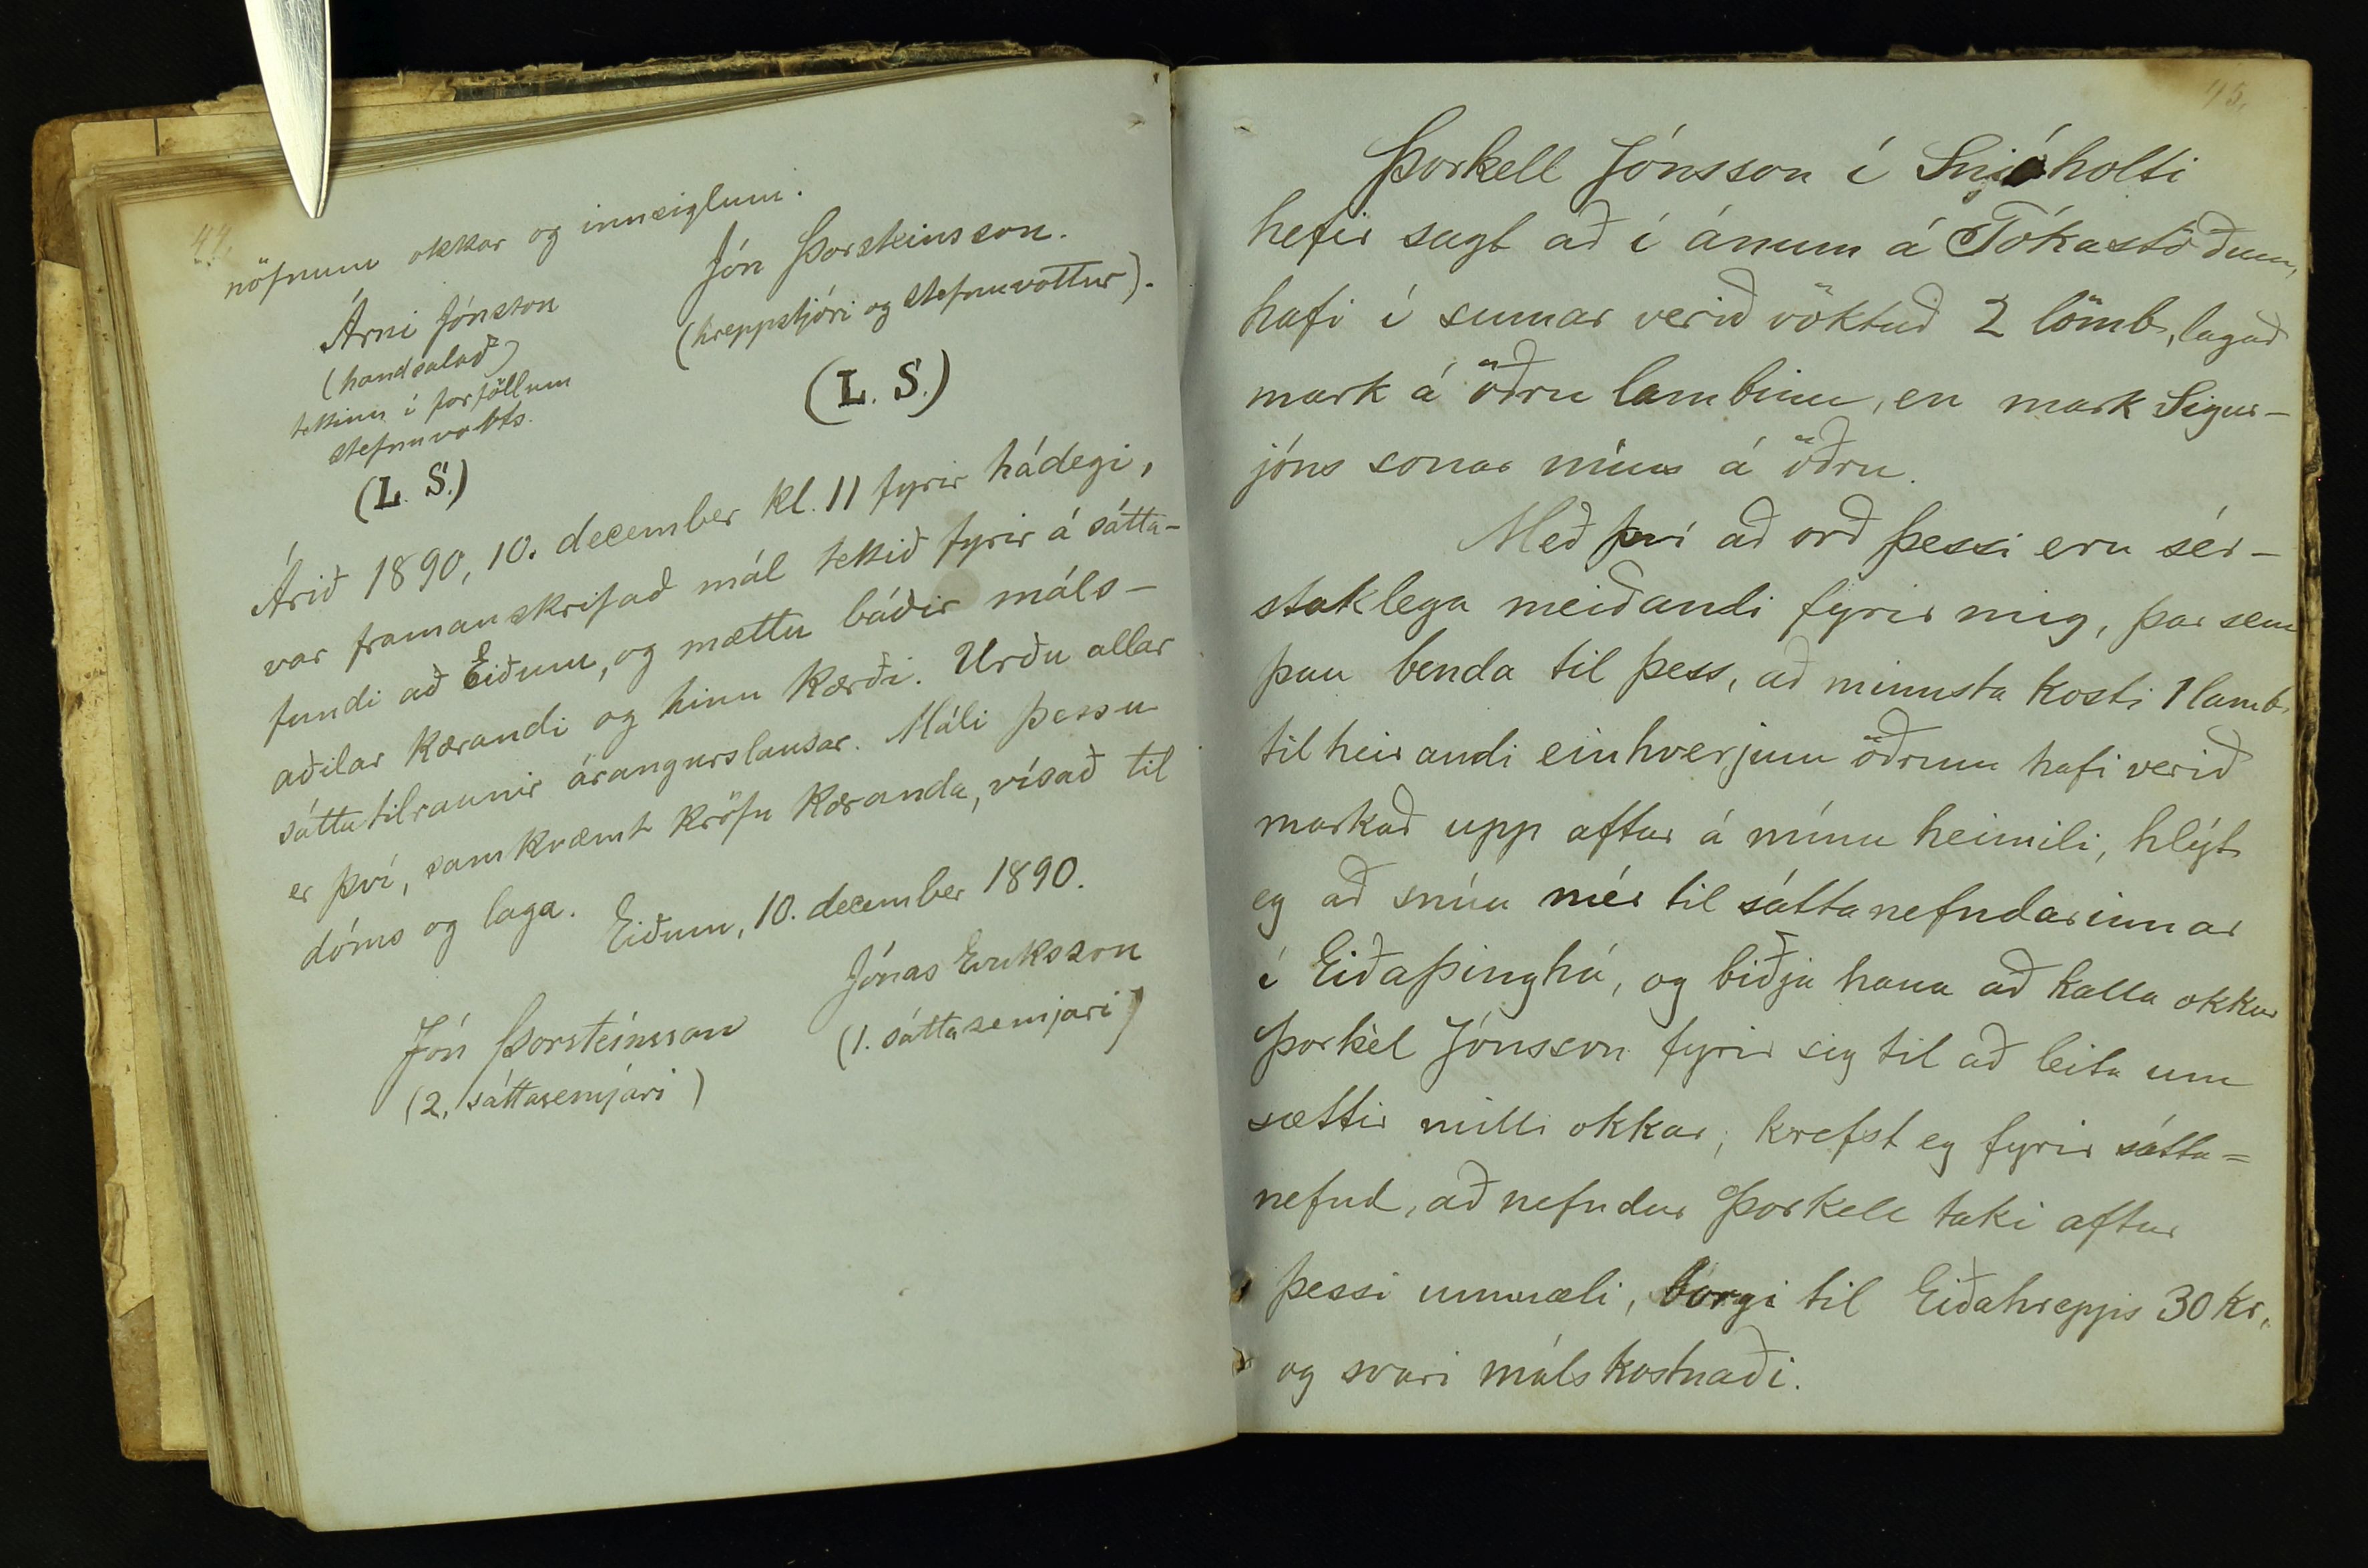 44.
nöfnum okkar og innsiglum.
Árni Jónsson
(handsalað)
tekinn í forföllum
stefnuvotts.
(L. S.)
Jón Þorsteinsson.
(hreppstjóri og stefnuvottur).
(L. S.)
Árið 1890, 10. december kl. 11 fyrir hádegi,
var framanskrifað mál tekið fyrir á sátta-
fundi að Eiðum, og mættu báðir máls-
aðilar kærandi og hinn kærði. Urðu allar
sáttatilraunir árangurslausar. Máli þessu
er því, samkvæmt kröfu kæranda, vísað til
dóms og laga.
Eiðum, 10. december 1890.
Jónas Eiríksson
(1. sáttasemjari)
Jón Þorsteinsson
(2. sáttasemjari)
45.
Þorkell Jónsson í Snjóholti
hefir sagt að í ánum á Tókastöðum,
hafi í sumar verið vöktuð 2 lömb, lagað
mark á öðru lambinu, en mark Sigur-
jóns sonar míns á öðru.
Með því að orð þessi eru sér-
staklega meiðandi fyrir mig, þar sem
þau benda til þess, að minnsta kosti 1 lamb
tilheirandi einhverjum öðrum hafi verið
markað upp aftur á mínu heimili, hlýt
eg að snúa mér til sáttanefndarinnar
í Eiðaþinghá, og biðja hana að kalla okkur
Þorkel Jónsson fyrir sig til að leita um
sættir milli okkar; krefst eg fyrir sátta=
nefnd, að nefndur Þorkell taki aftur
þessi ummæli, borgi til Eiðahrepps 30 kr.
og svari málskostnaði.